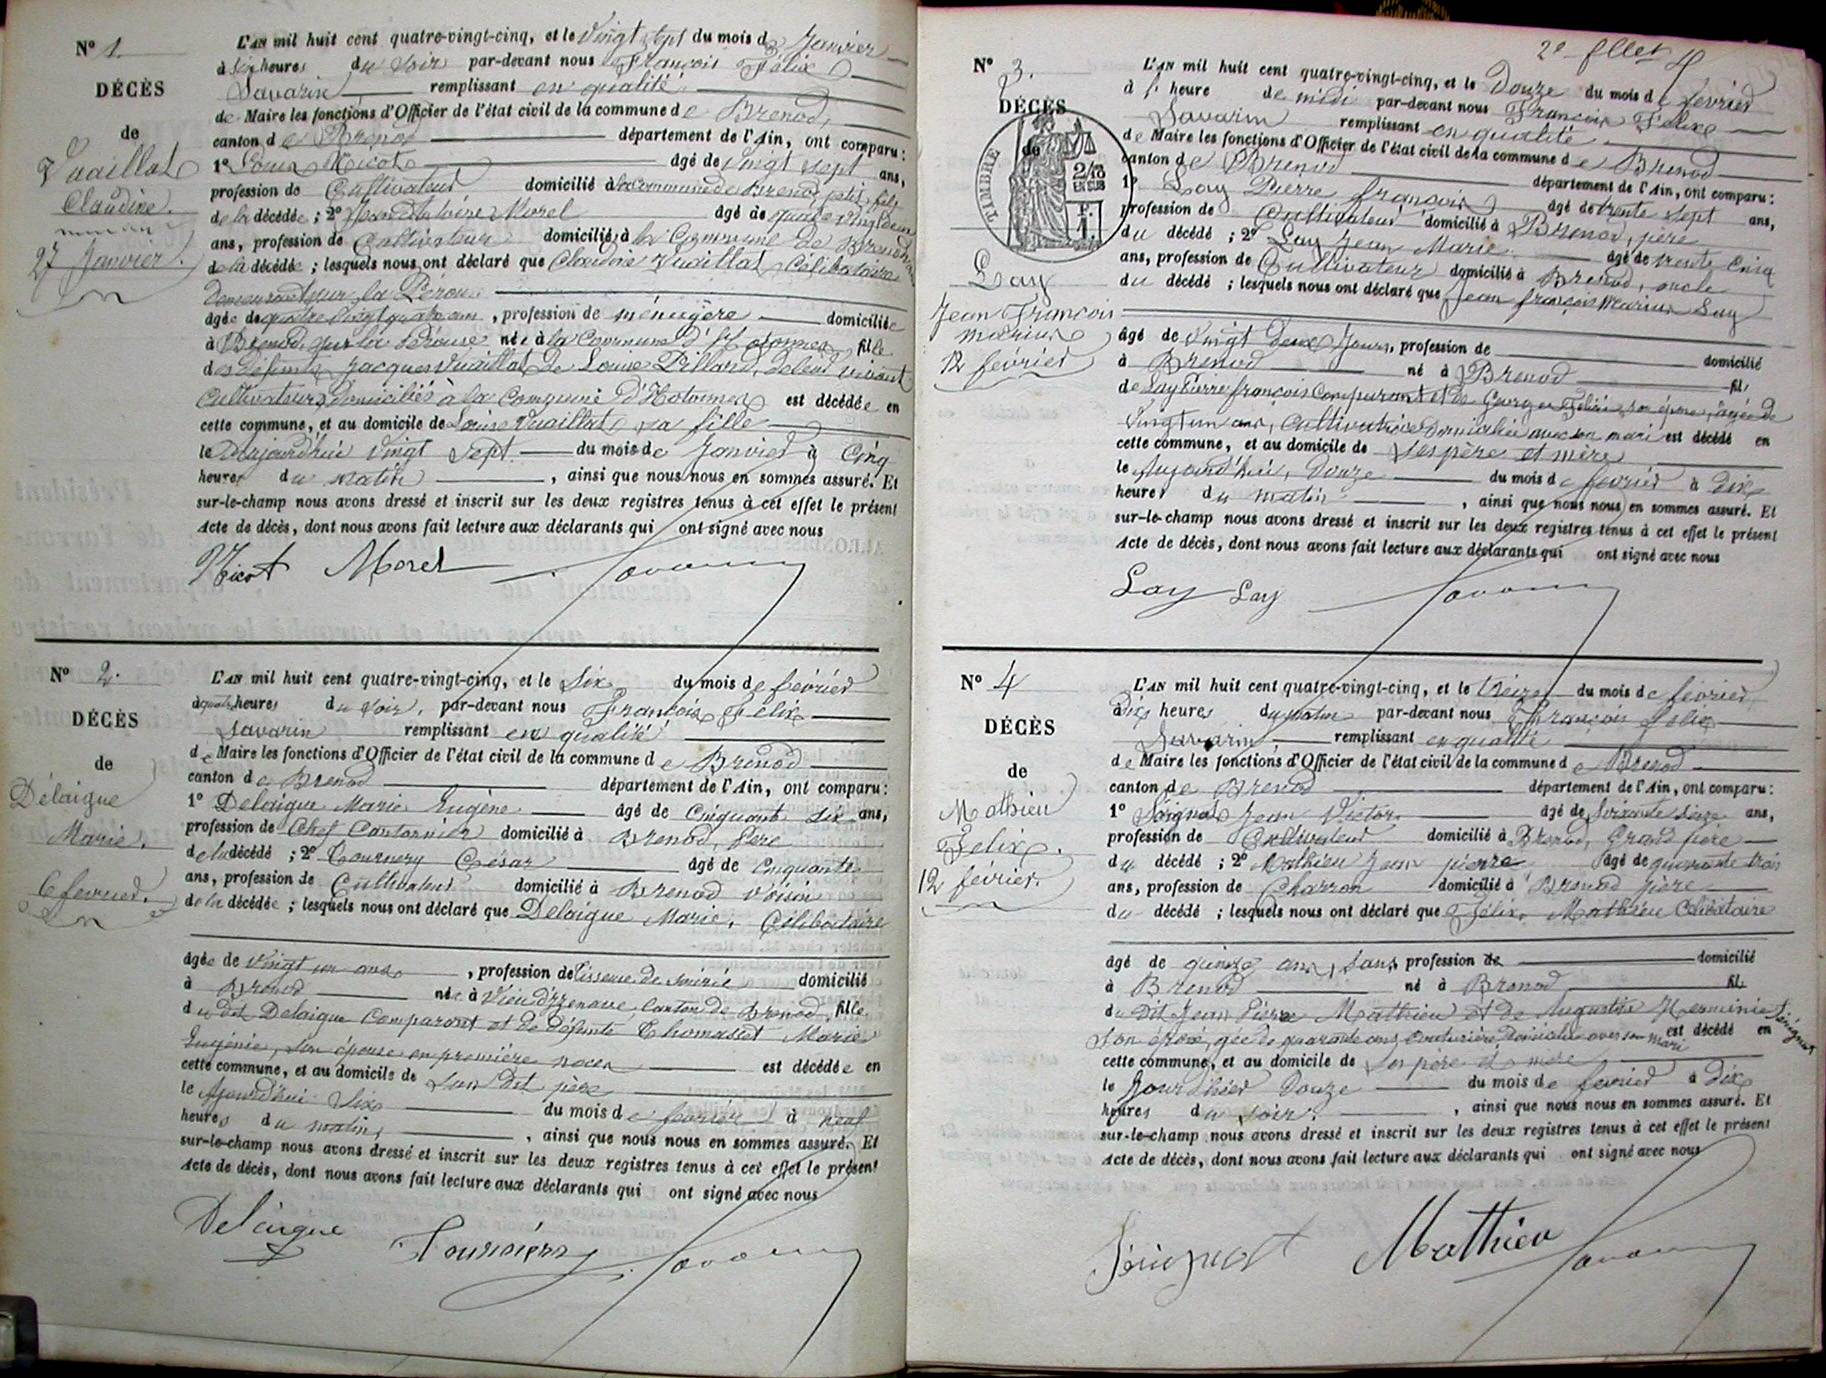 N° 1.
DÉCÈS
de
Vuaillat
Claudine.
27 Janvier.
L'AN mil huit cent quatre-vingt-cinq, et le vingt sept du mois de Janvier
à six heures du soir par-devant nous François Félix
Savarin remplissant en qualité
de Maire les fonctions d'Officier de l'état civil de la commune de Brenod,
canton de Brenod département de l'Ain, ont comparu:
1° Louis Nicot âgé de vingt sept ans,
profession de Cultivateur domicilié à la Commune de Brenod, petit fils
de la décédée; 2° Jean Antoine Morel âgé de quatre vingt deux
ans, profession de Cultivateur domicilié à la Commune de Brenod
de la décédée; lesquels nous ont déclaré que Claudine Vuaillat, Célibataire
demeurant sur la Pérouse
âgée de quatre vingt quatre ans, profession de ménagère domiciliée
à Brenod, sur la Pérouse née à la Commune d'Hotonnes fille
des défunts Jacques Vuaillat, De Louise Billard, de leur vivant
Cultivateurs domiciliés à la Commune d'Hotonnes est décédée en
cette commune, et au domicile de Louise Vuaillat sa fille
le Aujourd'hui vingt sept du mois de Janvier à Cinq
heures du matin, ainsi que nous nous en sommes assuré. Et
sur-le-champ nous avons dressé et inscrit sur les deux registres tenus à cet effet le présent
Acte de décès, dont nous avons fait lecture aux déclarants qui ont signé avec nous
Nicot Morel Savarin
N° 2.
DÉCÈS
de
Délaigue
Marie.
6 fevrier.
L'AN mil huit cent quatre-vingt-cinq, et le Six du mois de fevrier
à quatre heures du soir, par-devant nous François Félix
Savarin remplissant en qualité
de Maire les fonctions d'Officier de l'état civil de la commune de Brenod
canton de Brenod département de l'Ain, ont comparu:
1° Delaigue Marie Eugène âgé de Cinquante six ans,
profession de Chef Cantonnier domicilié à Brenod, Père
de la décédé; 2° Tournery César âgé de Cinquante
ans, profession de Cultivateur domicilié à Brenod Voisin
de la décédée; lesquels nous ont déclaré que Delaigue Marie, Célibataire
âgée de vingt un ans, profession de Tisseuse de soierie domicilié
à Brenod née à Vieu d'Izenave Canton de Brenod, fille
du dit Delaigue Comparant et de défunte Thomasset Marie
Eugénie, son épouse en première noces est décédée en
cette commune, et au domicile de son dit père
le Aujourd'hui Six du mois de fevrier à neuf
heures du matin, ainsi que nous nous en sommes assuré. Et
sur-le-champ nous avons dressé et inscrit sur les deux registres tenus à cet effet le présent
Acte de décès, dont nous avons fait lecture aux déclarants qui ont signé avec nous
Delaigue Savarin
2e fllet
N° 3.
DÉCÈS
de
TIMBRE
2/10
EN SUS
Lay
Jean François
marius
12 février
L'AN mil huit cent quatre-vingt-cinq, et le Douze du mois de fevrier
à 1 heure de midi par-devant nous François Félix
Savarin remplissant en qualité
de Maire les fonctions d'Officier de l'état civil de la commune de Brenod
canton de Brenod département de l'Ain, ont comparu:
1° Lay Pierre françois âgé de trente sept ans,
profession de Cultivateur domicilié à Brenod, père
du décédé; 2° Lay Jean Marie âgé de trente cinq
ans, profession de Cultivateur domicilié à Brenod, oncle
du décédé; lesquels nous ont déclaré que Jean françois Marius Lay
âgé de vingt deux Jours, profession de domicilié
à Brenod né à Brenod fils
de Lay Pierre françois Comparant et de son épouse, âgée de
vingt un ans, Cultivatrice domiciliée avec son mari est décédé en
cette commune, et au domicile de ses père et mère
le Aujourd'hui, Douze du mois de fevrier à dix
heures du matin, ainsi que nous nous en sommes assuré. Et
sur-le-champ nous avons dressé et inscrit sur les deux registres tenus à cet effet le présent
Acte de décès, dont nous avons fait lecture aux déclarants qui ont signé avec nous
Lay Lay Savarin
N° 4
DÉCÈS
de
Mathieu
Felix.
12 février.
L'AN mil huit cent quatre-vingt-cinq, et le treize du mois de fevrier
à dix heures du matin par-devant nous François Felix
Savarin remplissant en qualité
de Maire les fonctions d'Officier de l'état civil de la commune de Brenod
canton de Brenod département de l'Ain, ont comparu:
1° Jean Victor âgé de Soixante seize ans,
profession de Cultivateur domicilié à Brenod, Grand père
du décédé; 2° Mathieu Jean pierre âgé de quarante trois
ans, profession de Charron domicilié à Brenod père
du décédé; lesquels nous ont déclaré que Félix Mathieu Célibataire
âgé de quinze ans, sans profession de domicilié
à Brenod né à Brenod fils
du dit Jean Pierre Mathieu et de Augustine Herminie
son épouse, agée de quarante ans, Couturière domiciliée avec son mari est décédé en
cette commune, et au domicile de ses père et mère
le Jour d'hier Douze du mois de fevrier à dix
heures du soir, ainsi que nous nous en sommes assuré. Et
sur-le-champ nous avons dressé et inscrit sur les deux registres tenus à cet effet le présent
Acte de décès, dont nous avons fait lecture aux déclarants qui ont signé avec nous
Mathieu Savarin